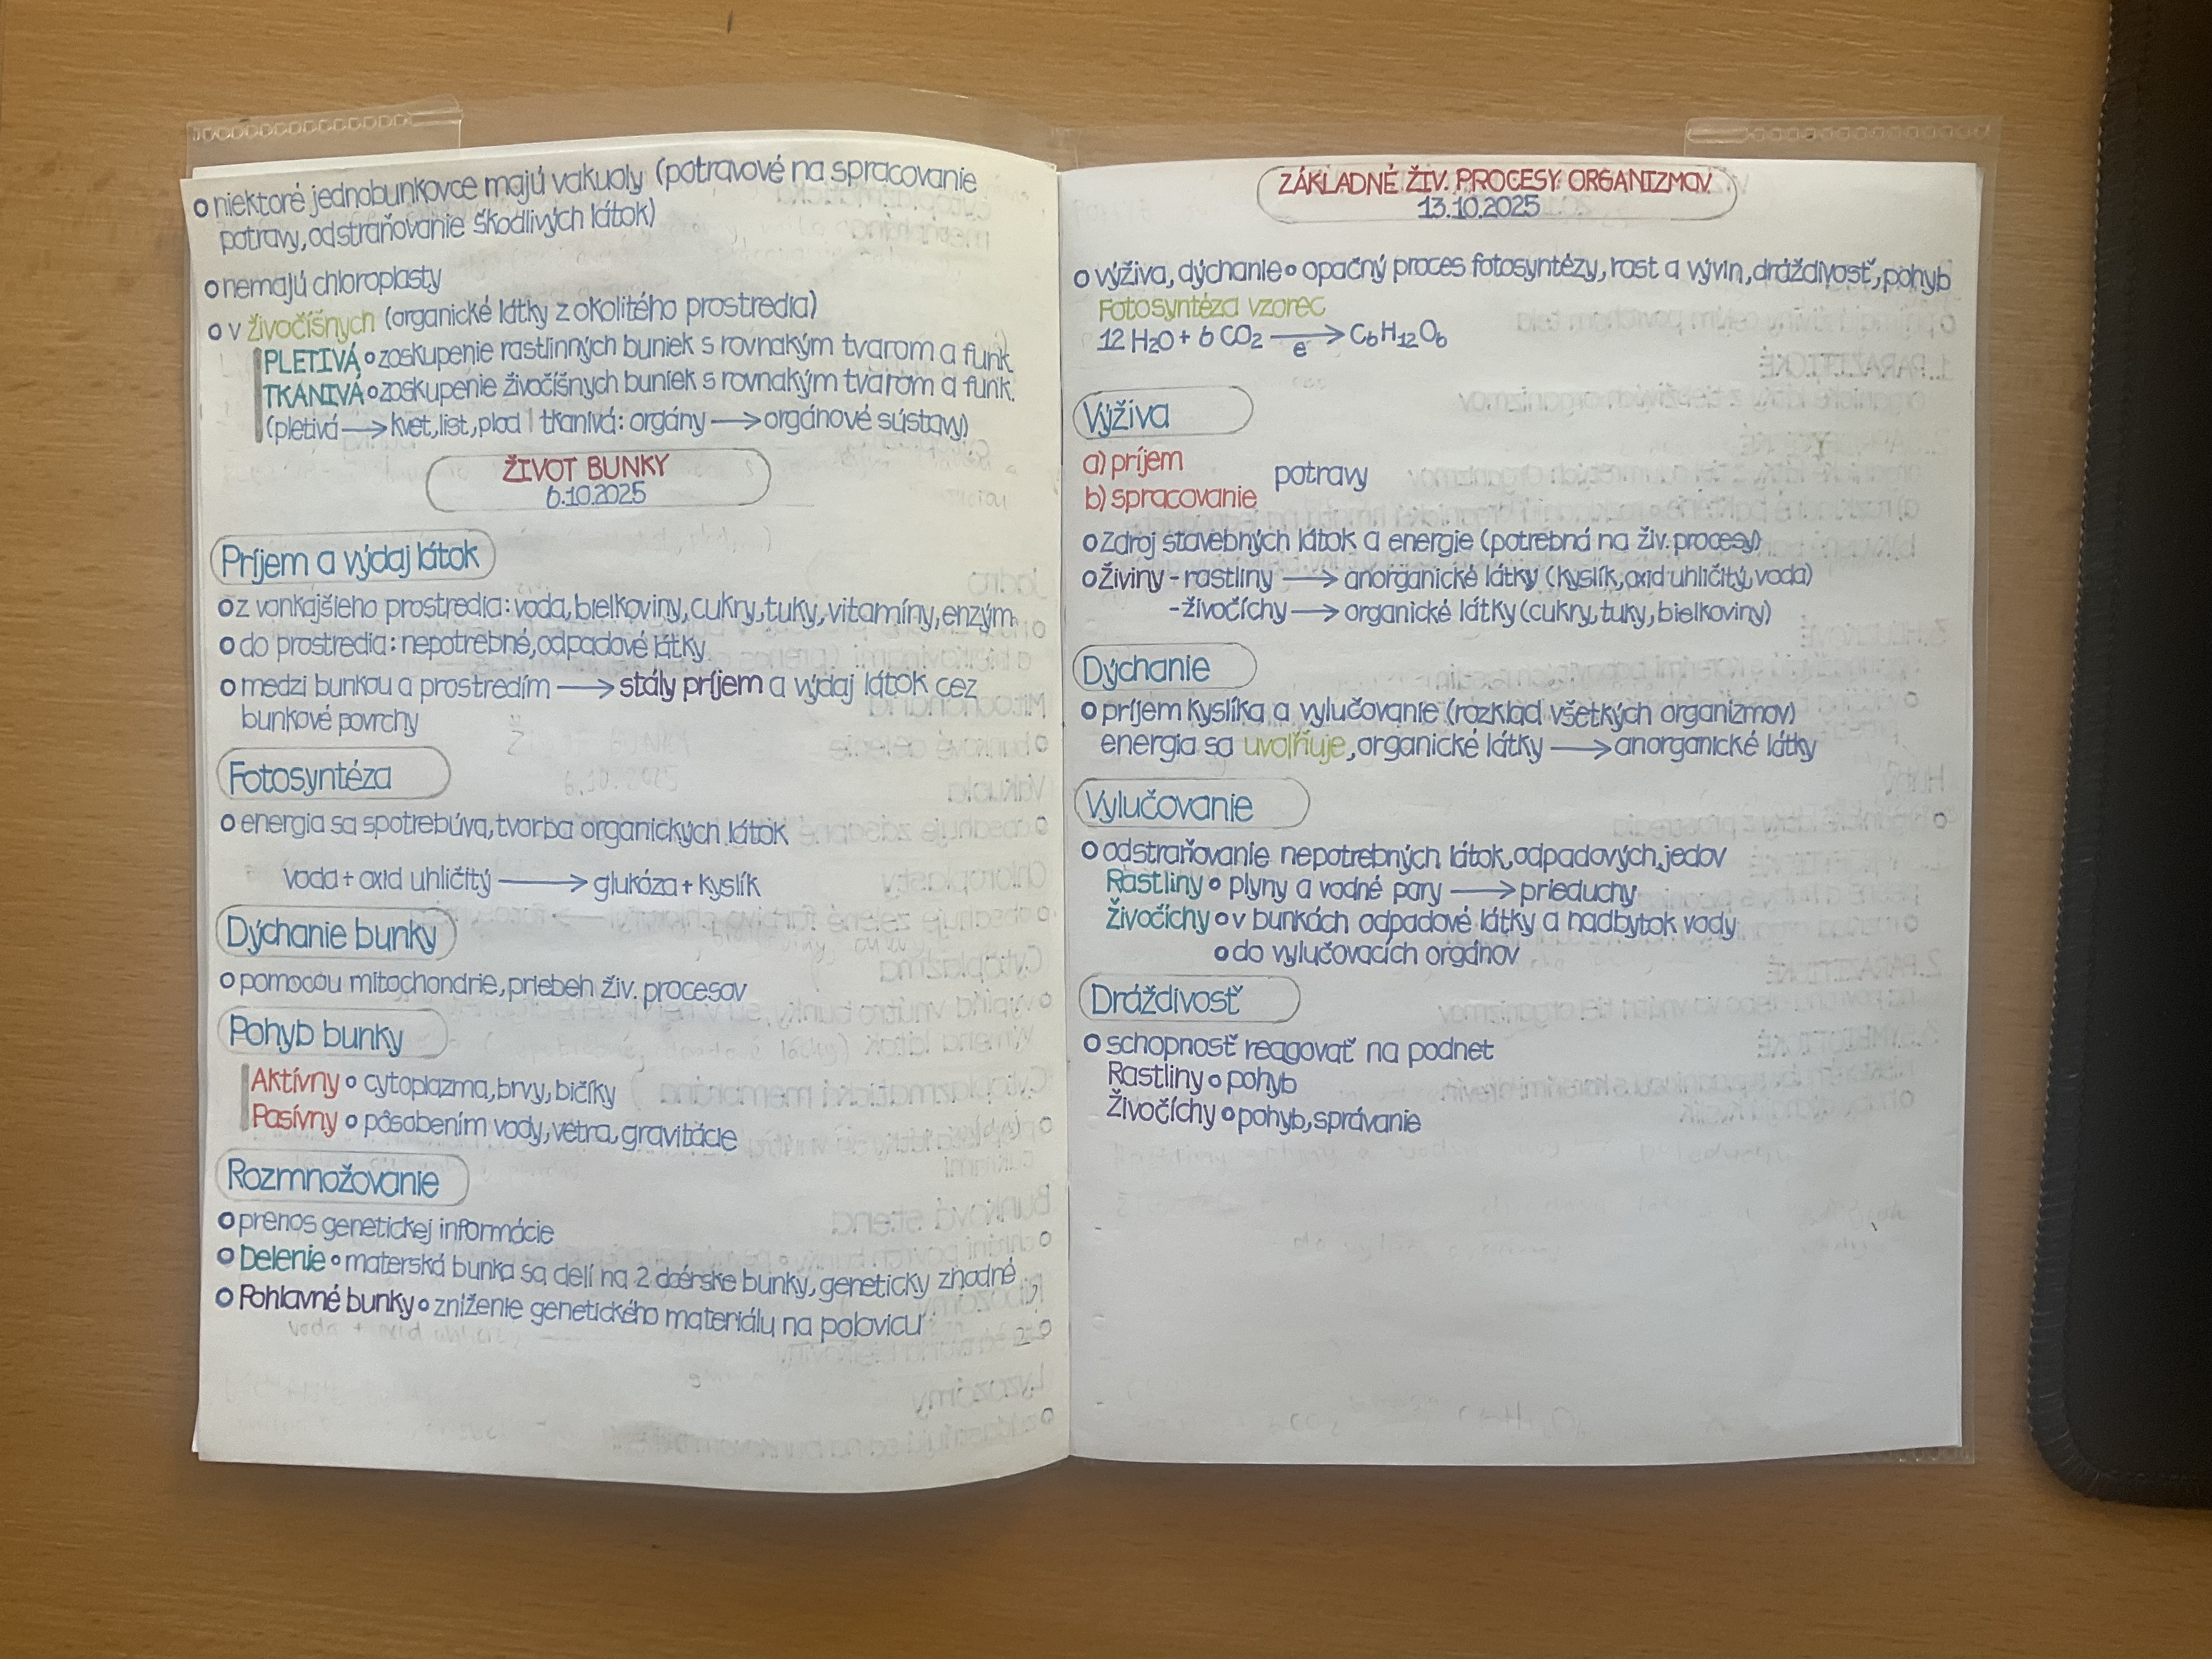 o niektoré jednobunkovce majú vakuoly (potravové na spracovanie
potravy, odstraňovanie škodlivých látok)
o nemajú chloroplasty
o v živočíšnych (organické látky z okolitého prostredia)
PLETIVÁ o zoskupenie rastlinných buniek s rovnakým tvarom a funk.
TKANIVÁ o zoskupenie živočíšnych buniek s rovnakým tvarom a funk.
(pletivá → kvet, list, plod | tkanivá: orgány → orgánové sústavy)
ŽIVOT BUNKY
6.10.2025
Príjem a výdaj látok
o z vonkajšieho prostredia: voda, bielkoviny, cukry, tuky, vitamíny, enzým.
o do prostredia: nepotrebné, odpadové látky
o medzi bunkou a prostredím → stály príjem a výdaj látok cez
bunkové povrchy
Fotosyntéza
o energia sa spotrebúva, tvorba organických látok
voda + oxid uhličitý → glukóza + kyslík
Dýchanie bunky
o pomocou mitochondrie, priebeh živ. procesov
Pohyb bunky
Aktívny o cytoplazma, brvy, bičíky
Pasívny o pôsobením vody, vetra, gravitácie
Rozmnožovanie
o prenos genetickej informácie
o Delenie o materská bunka sa delí na 2 dcérske bunky, geneticky zhodné
o Pohlavné bunky o zníženie genetického materiálu na polovicu
ZÁKLADNÉ ŽIV. PROCESY ORGANIZMOV
13.10.2025
o výživa, dýchanie o opačný proces fotosyntézy, rast a vývin, dráždivosť, pohyb
Fotosyntéza vzorec
12 H₂O + 6 CO₂ → C₆H₁₂O₆
e
Výživa
a) príjem
potravy
b) spracovanie
o Zdroj stavebných látok a energie (potrebná na živ. procesy)
o Živiny - rastliny → anorganické látky (kyslík, oxid uhličitý, voda)
- živočíchy → organické látky (cukry, tuky, bielkoviny)
Dýchanie
o príjem kyslíka a vylučovanie (rozklad všetkých organizmov)
energia sa uvoľňuje, organické látky → anorganické látky
Vylučovanie
o odstraňovanie nepotrebných látok, odpadových, jedov
Rastliny o plyny a vodné pary → prieduchy
Živočíchy o v bunkách odpadové látky a nadbytok vody
o do vylučovacích orgánov
Dráždivosť
o schopnosť reagovať na podnet
Rastliny o pohyb
Živočíchy o pohyb, správanie